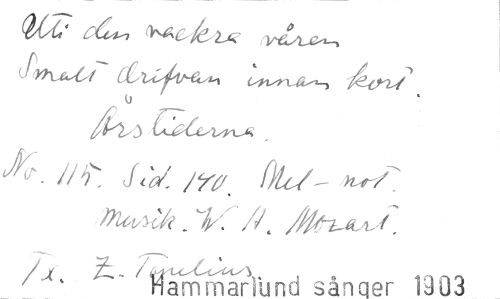 Uti den vackra våren
Smalt drifvan innan kort.
Årstiderna.
No. 115. Sid. 140. Mel-not.
Musik. W. A. Mozart.
Tx. Z. Topelius
Hammarlund sånger 1903